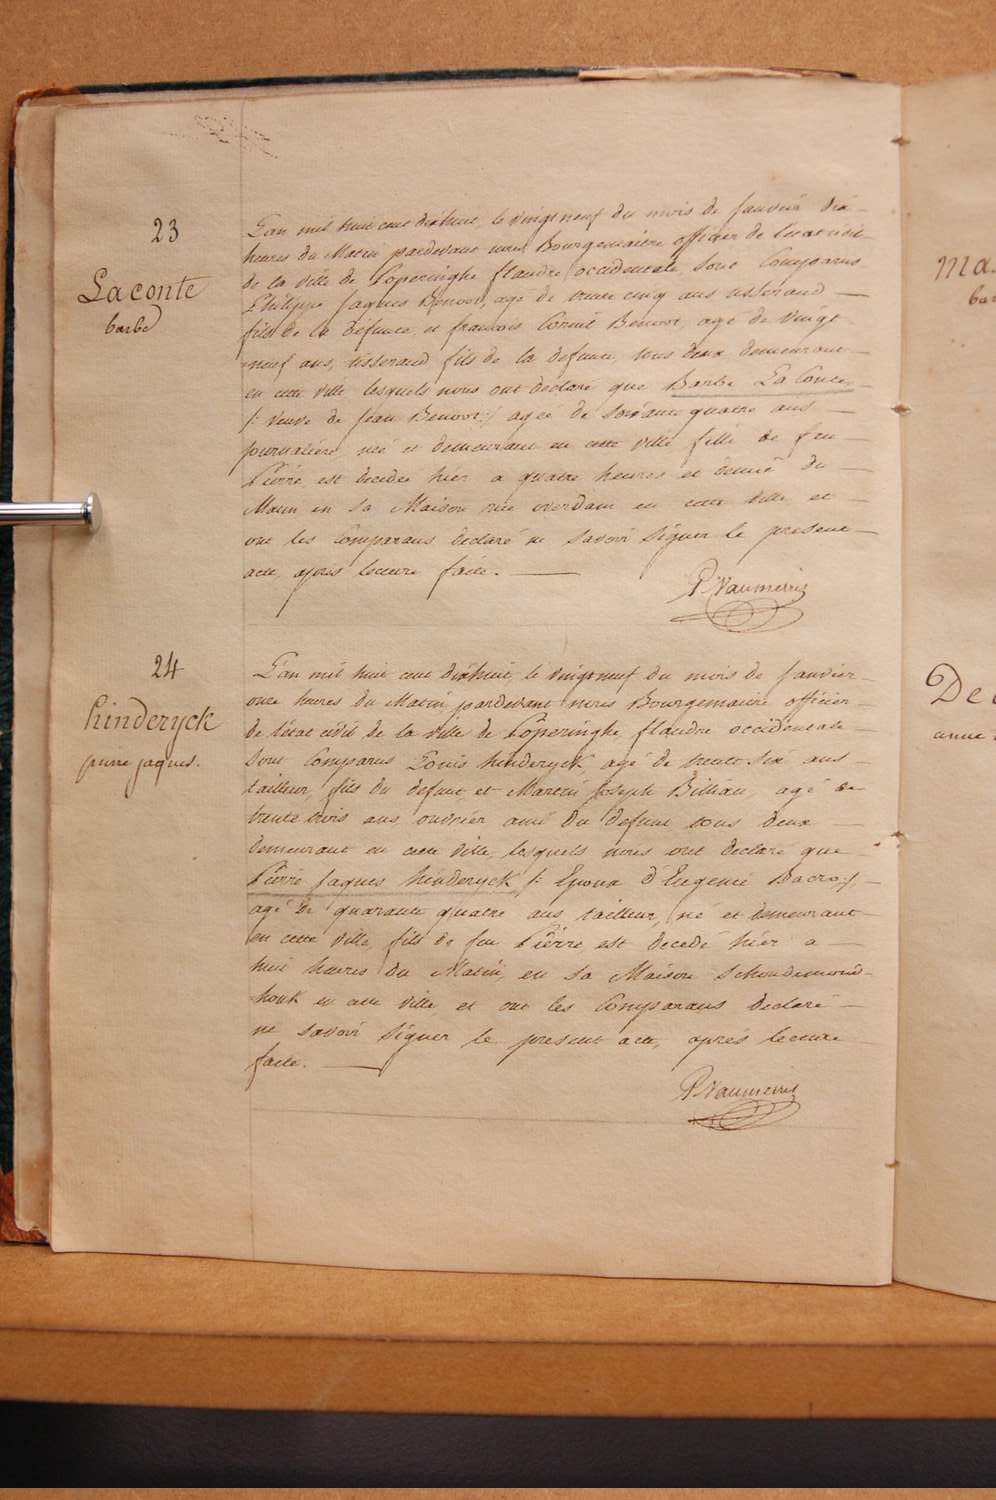 23
Laconte
barbe
L'an mil huit cent dixhuit, le vingt neuf du mois de Janvier dix
heures du Matin pardevant nous Bourgemaitre officier de l'etat civil
de la ville de Poperinghe flandre occidentale, sont Comparus
Philippe Jaques Benoot, agé de trente cinq ans tisserand
fils de la défunte, et francois Corneil Benoot, agé de vingt
neuf ans, tisserand fils de la defunte, tous deux demeurant
en cette ville lesquels nous ont declaré que Barbe La Conte
/: veuve de Jean Benoot :/ agée de soixante quatre ans
journaliere, né et demeurant en cette ville fille de feu
Pierre, est decedée hier a quatre heures et demie du
Matin en sa Maison rue overdam en cette ville et
ont les Comparans declaré ne savoir signer le present
acte, après lecture faite.
P. Vanmerris
24
hinderyck
pierre jaques.
L'an mil huit cent dixhuit, le vingt neuf du mois de Janvier
onze heures du Matin, pardevant nous Bourgemaitre officier
de l'état civil de la ville de Poperinghe, flandre occidentale
sont Comparus Louis hinderyck, agé de trente six ans
tailleur, fils du défunt et Martin Joseph Billiau, agé de
trente trois ans, ouvrier ami du defunt tous deux
demeurant en cette ville, lesquels nous ont declaré que
Pierre Jaques hinderyck /: Epoux d'Eugenie Bacro :/,
agé de quarante quatre ans tailleur, né et demeurant
en cette ville, fils de feu Pierre est decedé hier a
huit heures du Matin, en sa Maison
houk en cette ville, et ont les Comparans declaré
ne savoir signer le present acte, après lecture
faite.
P. Vanmerris
Ma
bar
De
anne